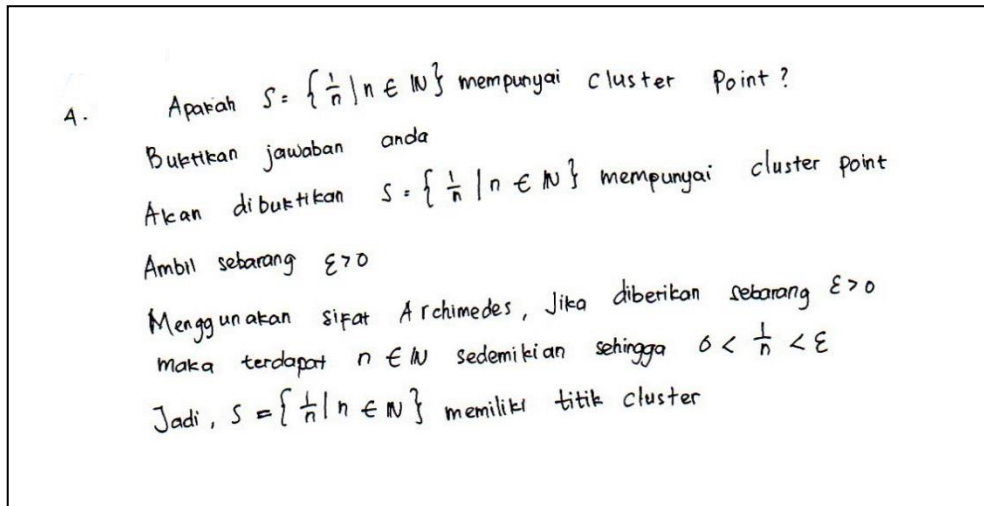 4. Apakah S = { 1/n | n ∈ ℕ } mempunyai cluster Point ?
Buktikan jawaban anda
Akan dibuktikan S = { 1/n | n ∈ ℕ } mempunyai cluster point
Ambil sebarang ε > 0
Menggunakan sifat Archimedes, Jika diberikan sebarang ε > 0
maka terdapat n ∈ ℕ sedemikian sehingga 0 < 1/n < ε
Jadi, S = { 1/n | n ∈ ℕ } memiliki titik cluster